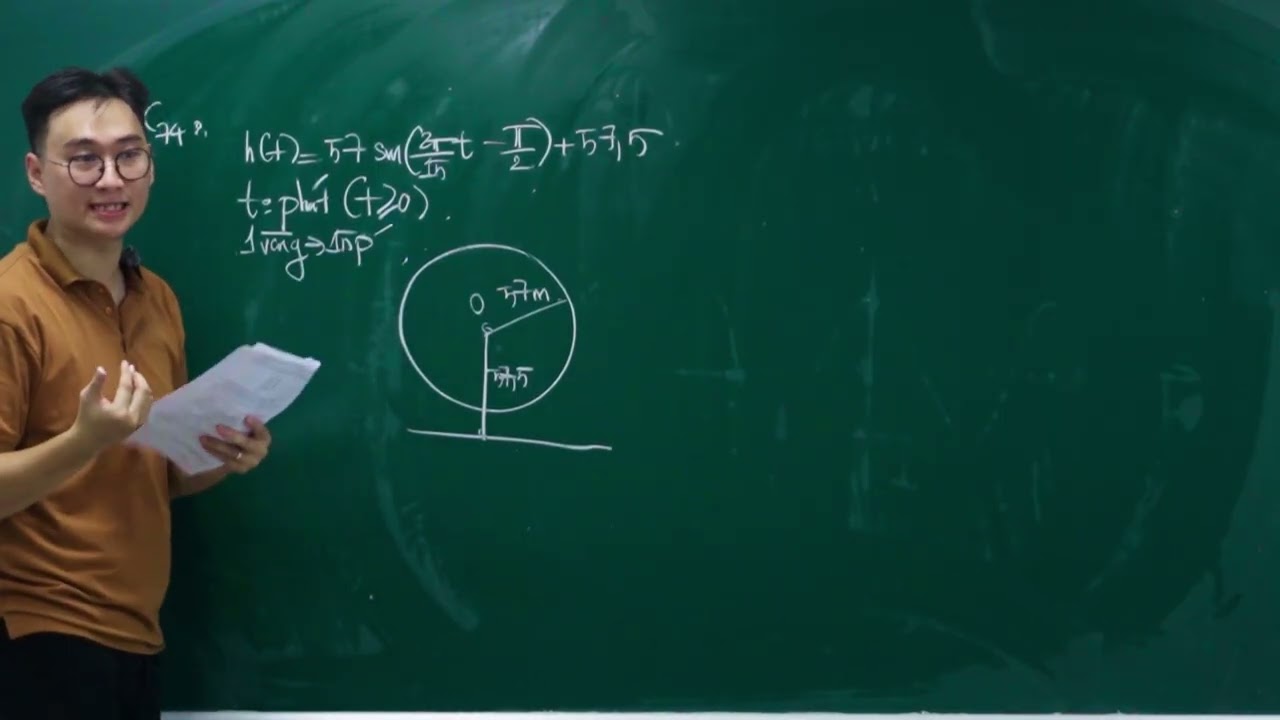 C74:
h(t) = 57 sin(2π/15 t - π/2) + 57,5
t: phút (t ≥ 0)
1 vòng → 15p'
O
57m
57,5